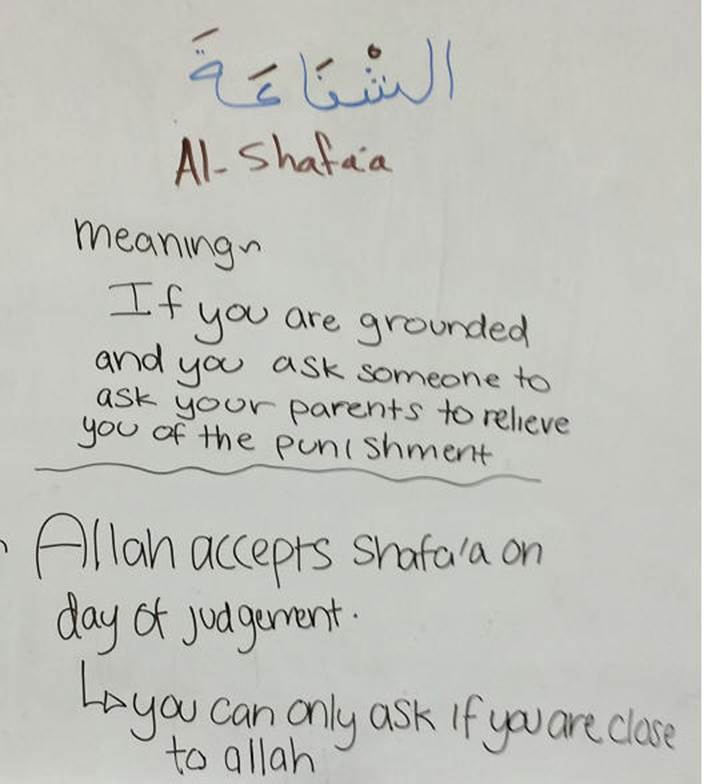 الشْفَاعَةَ
Al-Shafa'a
meaning~
If you are grounded
and you ask someone to
ask your parents to relieve
you of the punishment
Allah accepts Shafa'a on
day of judgement.
↳you can only ask if you are close
to allah